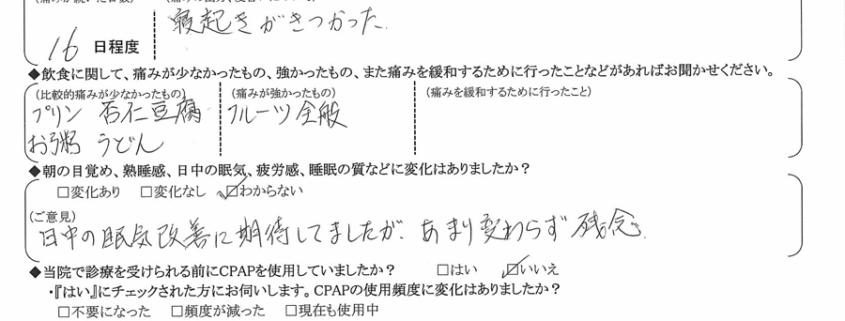 寝起きがきつかった.
16 日程度
◆飲食に関して、痛みが少なかったもの、強かったもの、また痛みを緩和するために行ったことなどがあればお聞かせください。
(比較的痛みが少なかったもの) (痛みが強かったもの) (痛みを緩和するために行ったこと)
プリン 杏仁豆腐 フルーツ全般
お粥 うどん
◆朝の目覚め、熟睡感、日中の眠気、疲労感、睡眠の質などに変化はありましたか?
□変化あり □変化なし ☑わからない
(ご意見)
日中の眠気改善に期待してましたが、あまり変わらず残念.
◆当院で診療を受けられる前にCPAPを使用していましたか? □はい ☑いいえ
・『はい』にチェックされた方にお伺いします。CPAPの使用頻度に変化はありましたか?
□不要になった □頻度が減った □現在も使用中